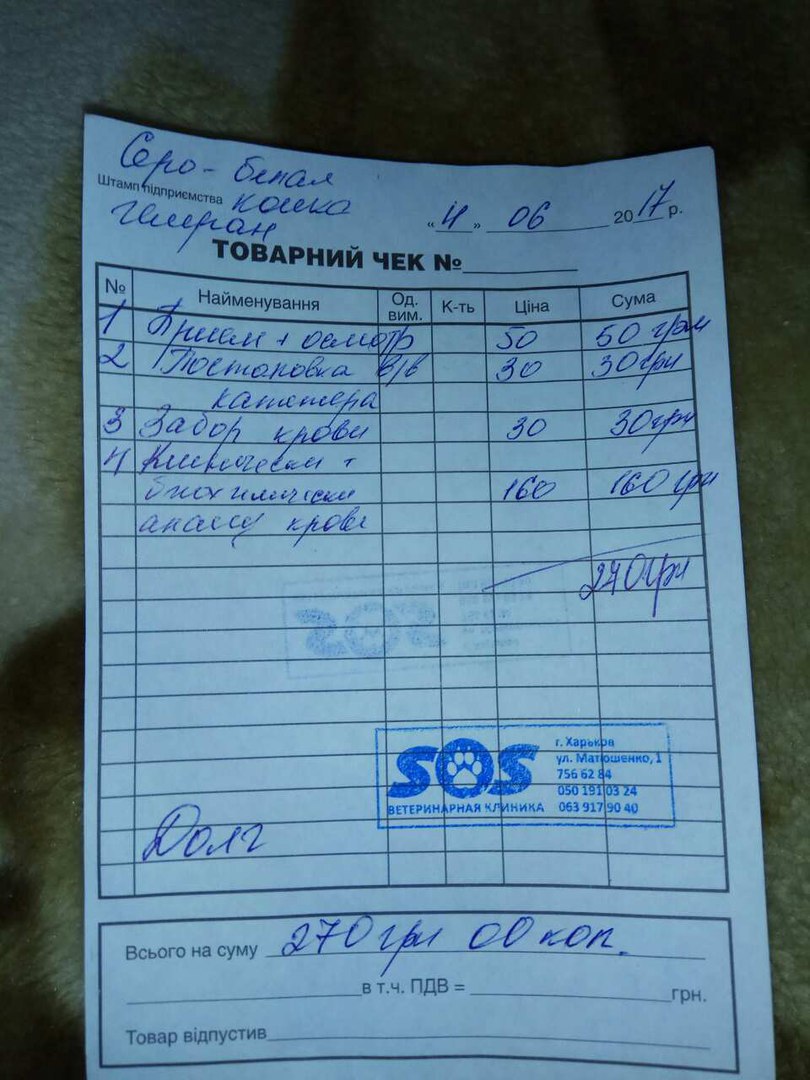 Серо-белая
Штамп підприємства кошка
"4" 06 2017 р.
ТОВАРНИЙ ЧЕК №
№ Найменування Од. вим. К-ть Ціна Сума
1 Прием + осмотр 50 50 грн
2 Постановка в/в 30 30 грн
катетера
3 Забор крови 30 30 грн
4 Клинически +
биохимически 160 160 грн
анализ крови
270 грн
SOS
ВЕТЕРИНАРНАЯ КЛИНИКА
г. Харьков
ул. Матюшенко, 1
756 62 84
050 191 03 24
063 917 90 40
Долг
Всього на суму 270 грн 00 коп.
в т.ч. ПДВ = грн.
Товар відпустив